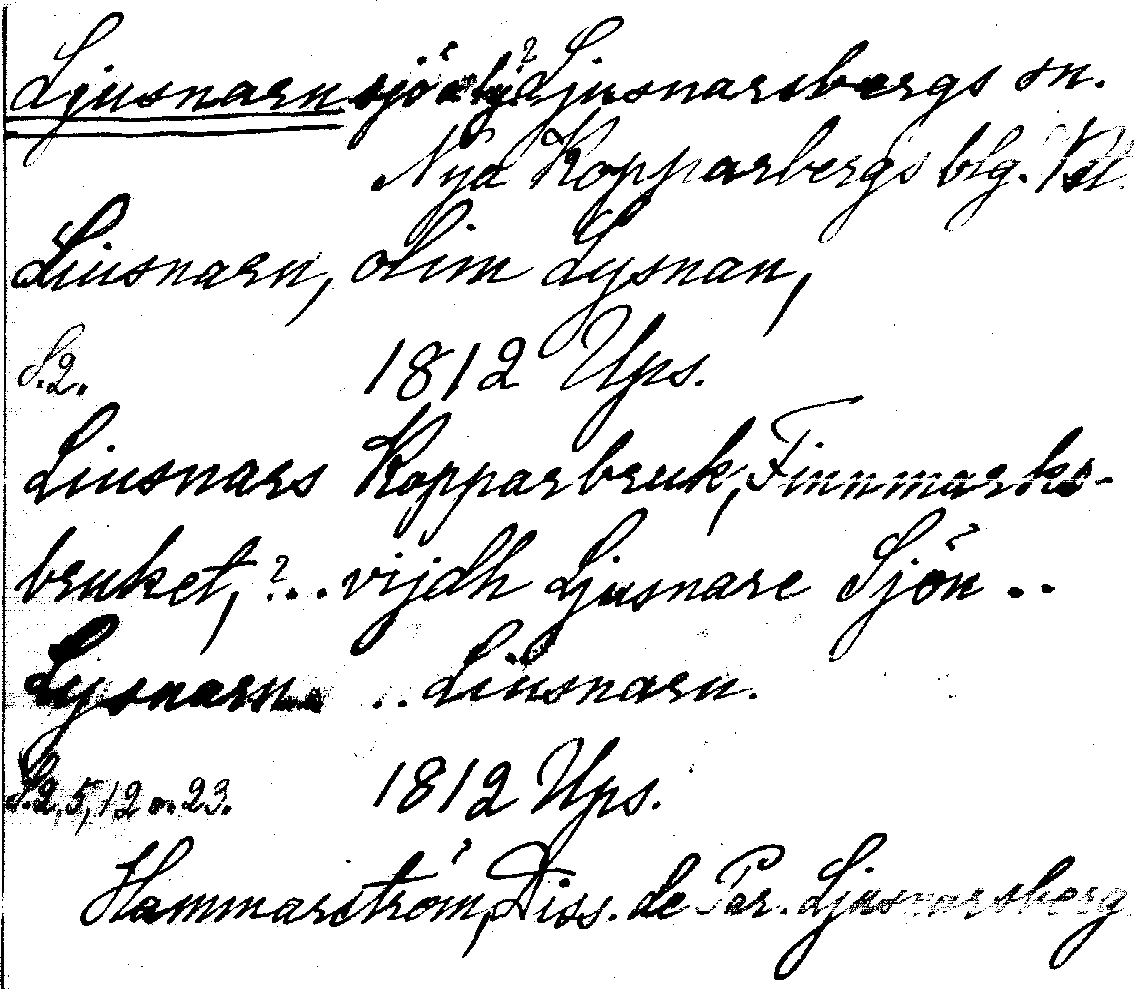 Ljusnarn sjö o. by? Ljusnarsbergs sn.
Nya Kopparbergs blg. Vstl.
Liusnarn, olim Lysnan,
S.2. 1812 Ups.
Liusnars Kopparbruk, Finnmarks-
bruket, ?.. vijdh Ljusnare Sjön ..
Lysnarn .. Liusnarn.
S.2, 5, 12 o. 23. 1812 Ups.
Hammarström, Diss. de Par. Ljusnarsberg